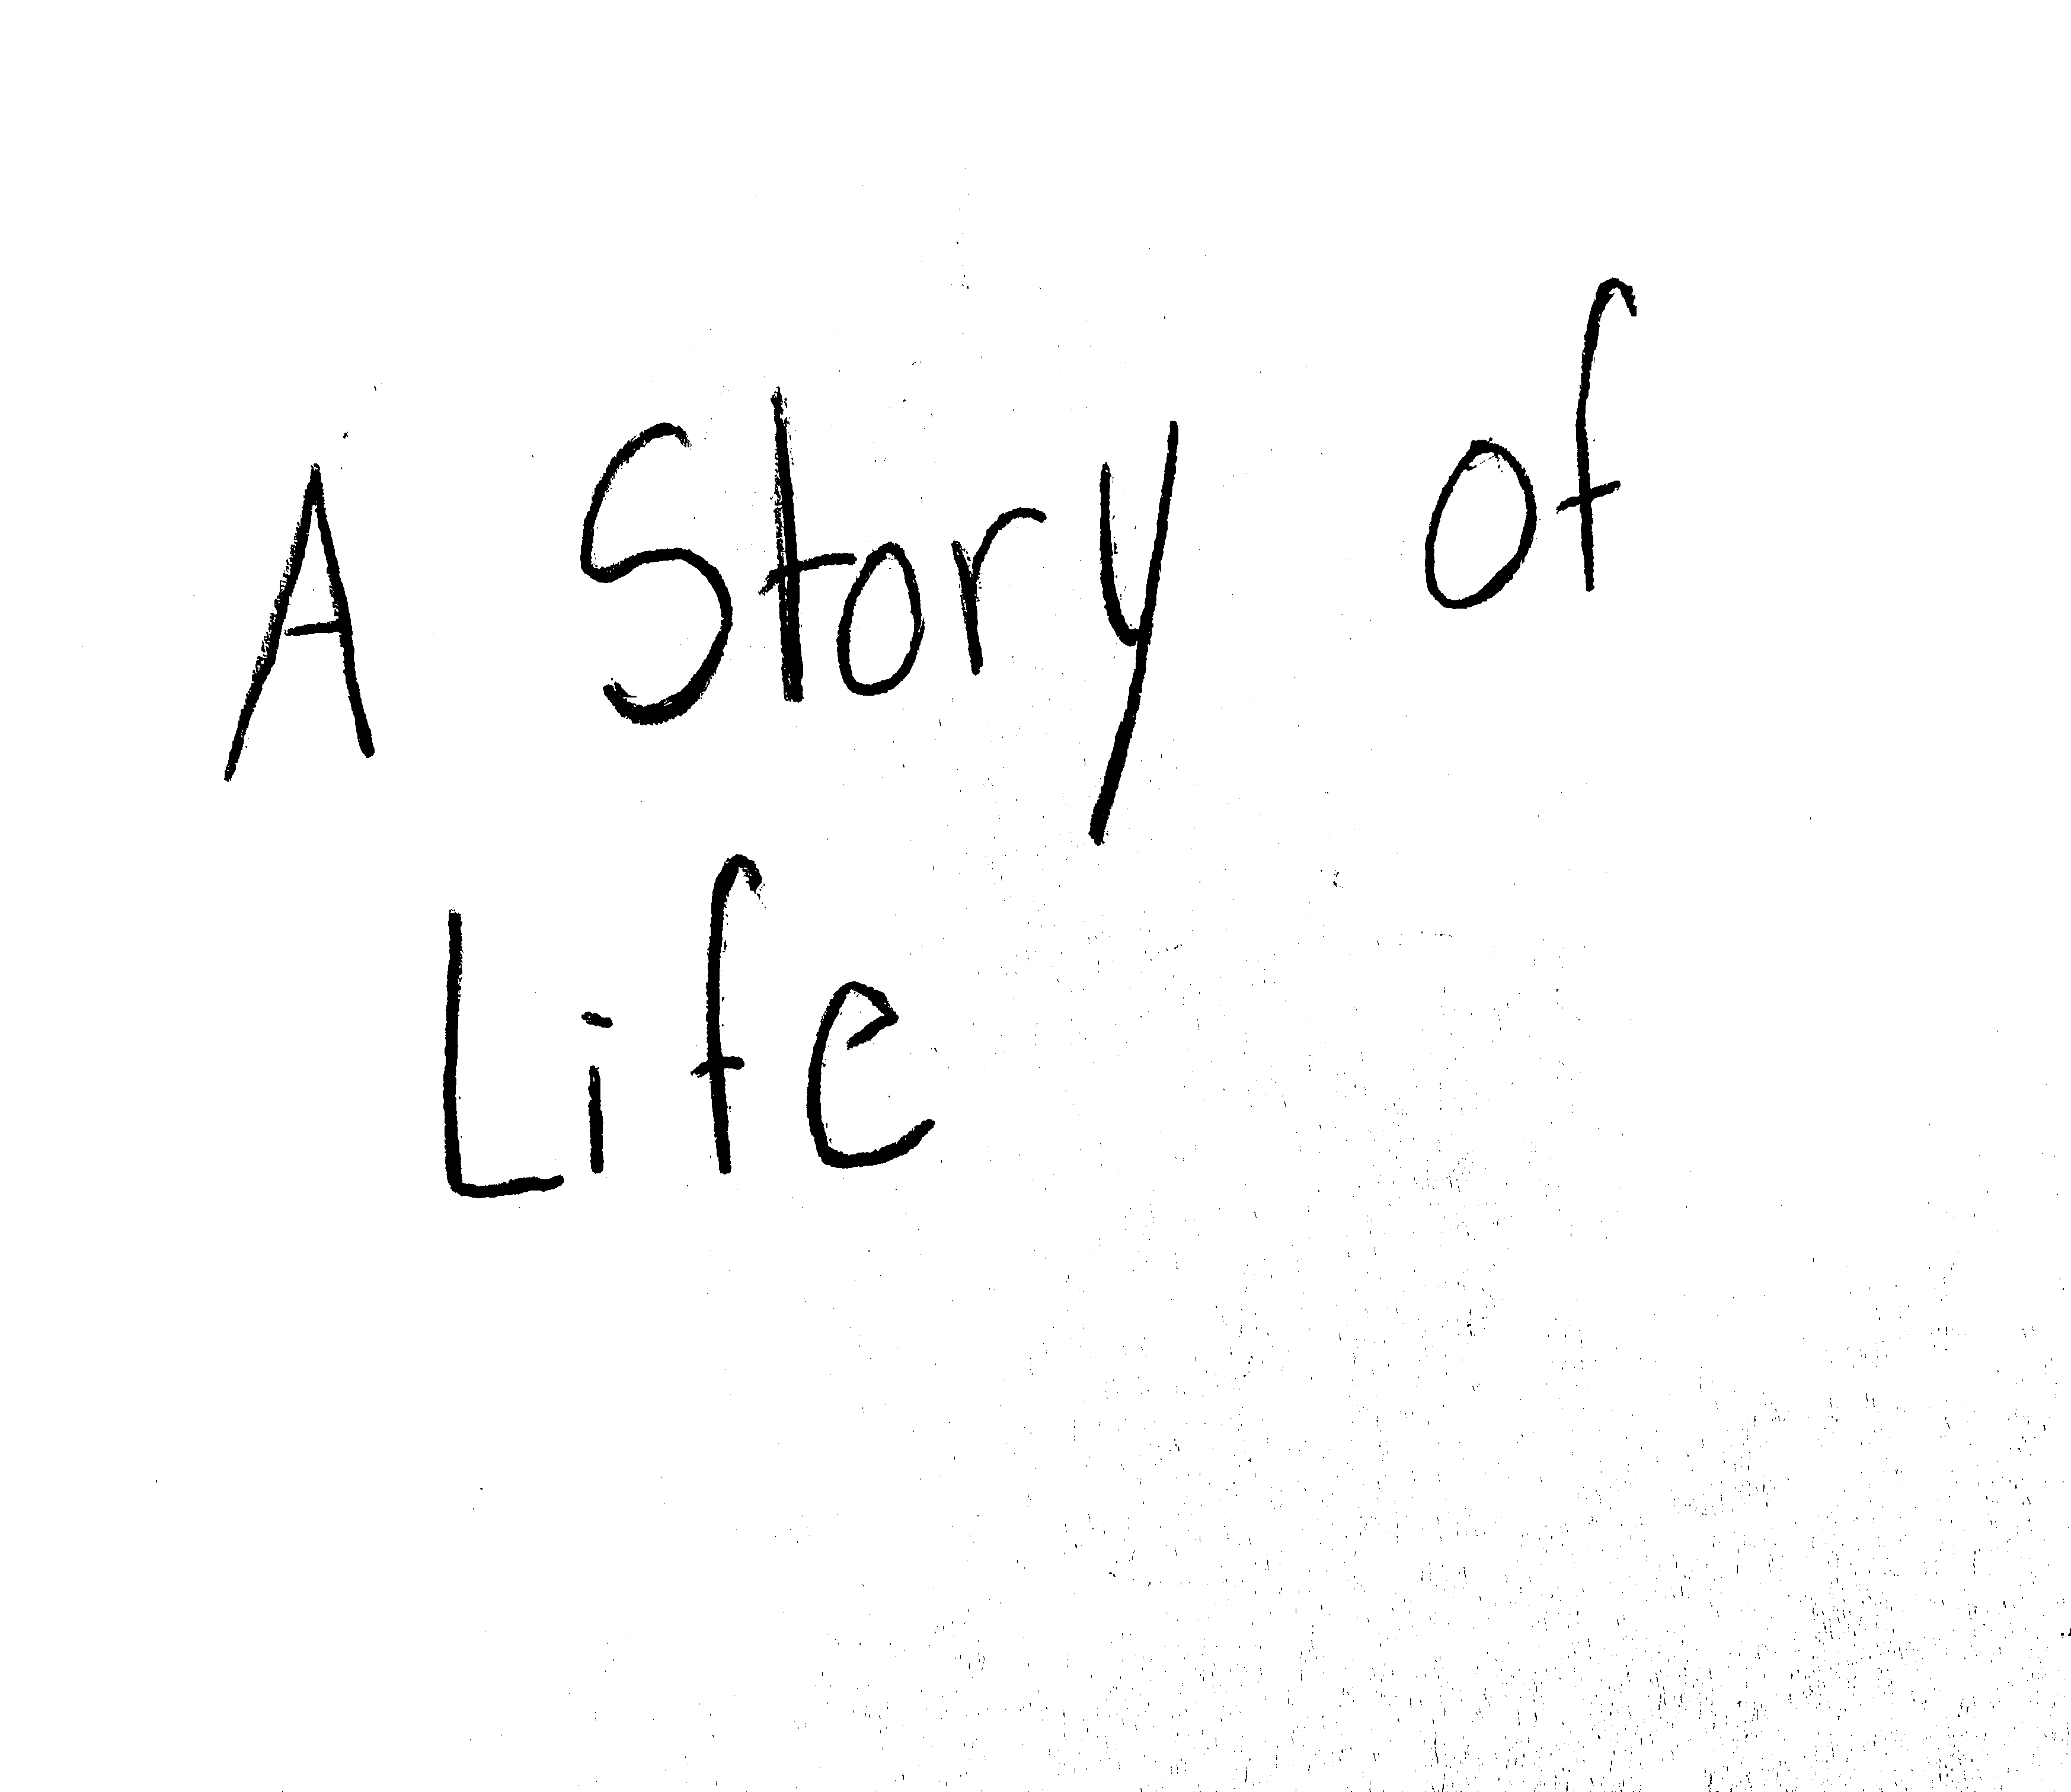 A Story of
Life